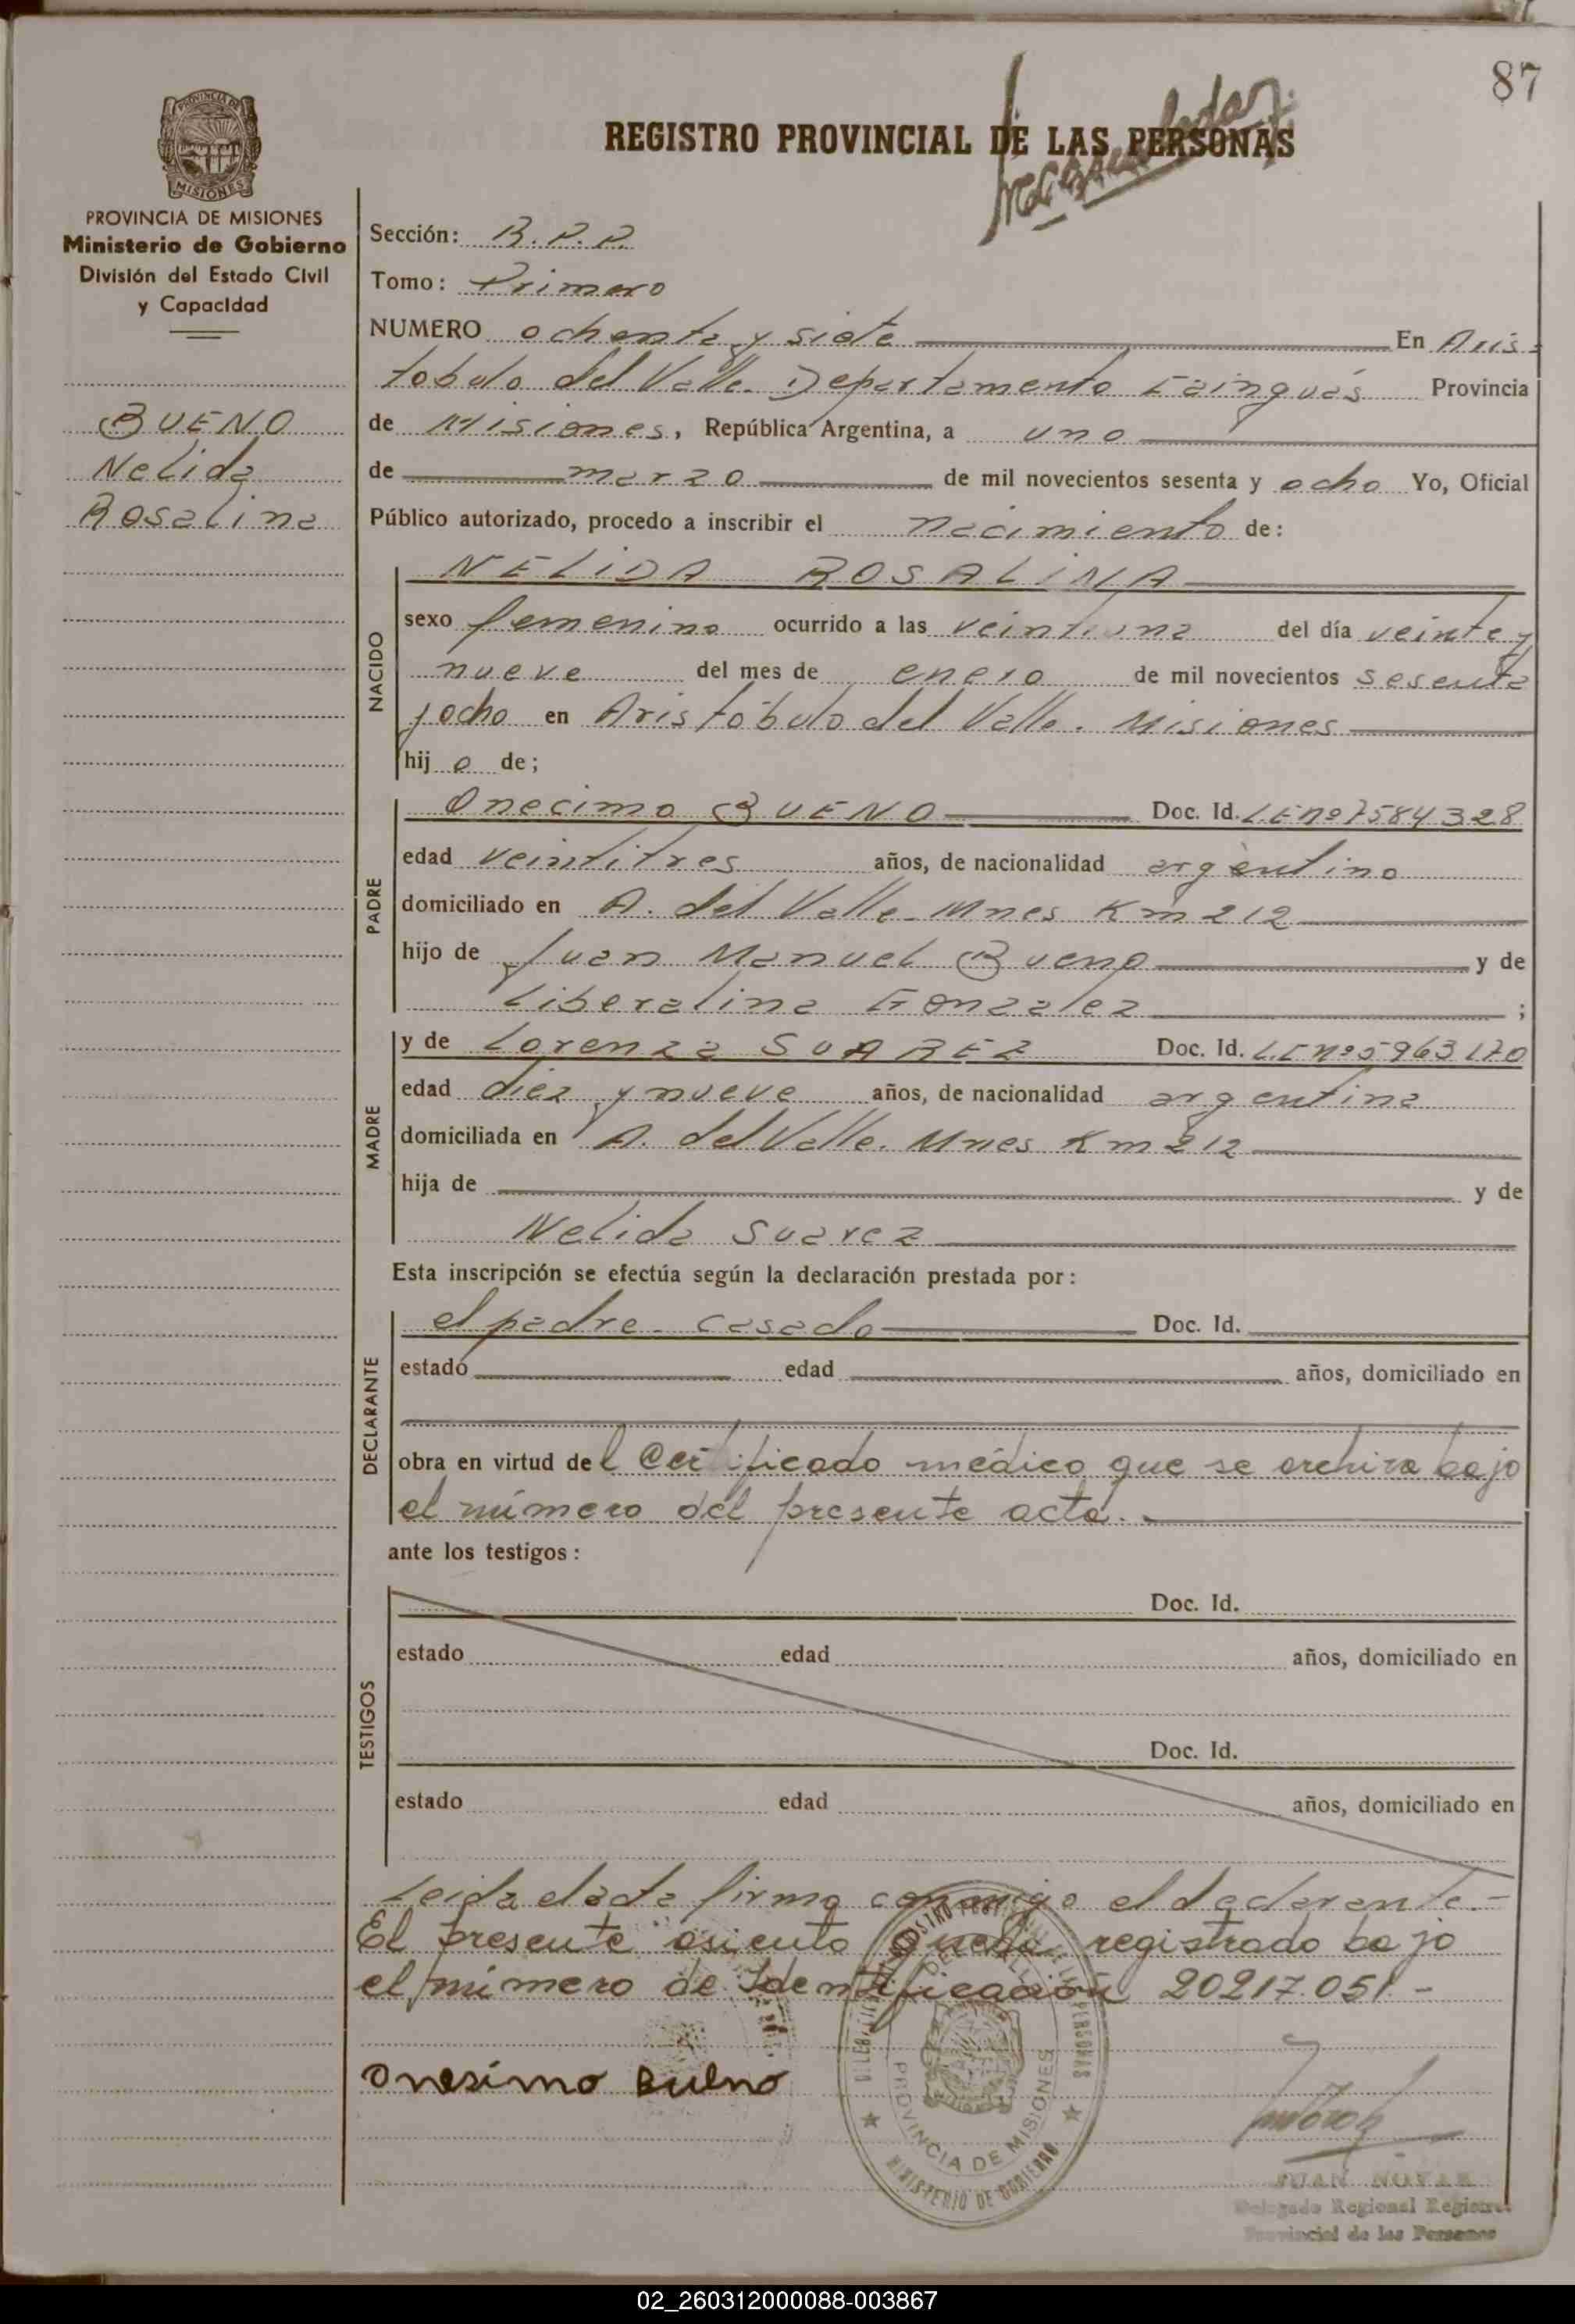 87
REGISTRO PROVINCIAL DE LAS PERSONAS
PROVINCIA DE MISIONES
MISIONES
PROVINCIA DE MISIONES
Ministerio de Gobierno
División del Estado Civil
y Capacidad
BUENO
Nelida
Rosalina
Sección: R.P.P.
Tomo: Primero
NUMERO ochenta y siete En Aris-
tobulo del Valle. Departamento Cainguás Provincia
de Misiones, República Argentina, a uno
de marzo de mil novecientos sesenta y ocho Yo, Oficial
Público autorizado, procedo a inscribir el nacimiento de:
NACIDO
NELIDA ROSALINA
sexo femenino ocurrido a las veintiuna del día veinte y
nueve del mes de enero de mil novecientos sesenta
y ocho en Aristóbulo del Valle. Misiones
hij a de;
PADRE
Onecimo BUENO Doc. Id. LE nº 7584328
edad veintitres años, de nacionalidad argentino
domiciliado en A. del Valle. Mnes Km 212
hijo de Juan Manuel Bueno y de
Liberalina Gonzalez ;
MADRE
y de Lorenza SUAREZ Doc. Id. L.C nº 5963170
edad diez y nueve años, de nacionalidad argentina
domiciliada en A. del Valle. Mnes Km 212
hija de y de
Nelida Suarez
Esta inscripción se efectúa según la declaración prestada por:
DECLARANTE
el padre. casado Doc. Id.
estado edad años, domiciliado en
obra en virtud del Certificado médico que se archiva bajo
el número del presente acta.
ante los testigos:
TESTIGOS
Doc. Id.
estado edad años, domiciliado en
Doc. Id.
estado edad años, domiciliado en
Leida el acta firma conmigo el declarante.-
El presente asiento queda registrado bajo
el número de Identificación 20217.051.-
Onesimo Bueno
PROVINCIA DE MISIONES
MINISTERIO DE GOBIERNO
JUAN NOVAK
Delegado Regional Registro
Provincial de las Personas
02_260312000088-003867